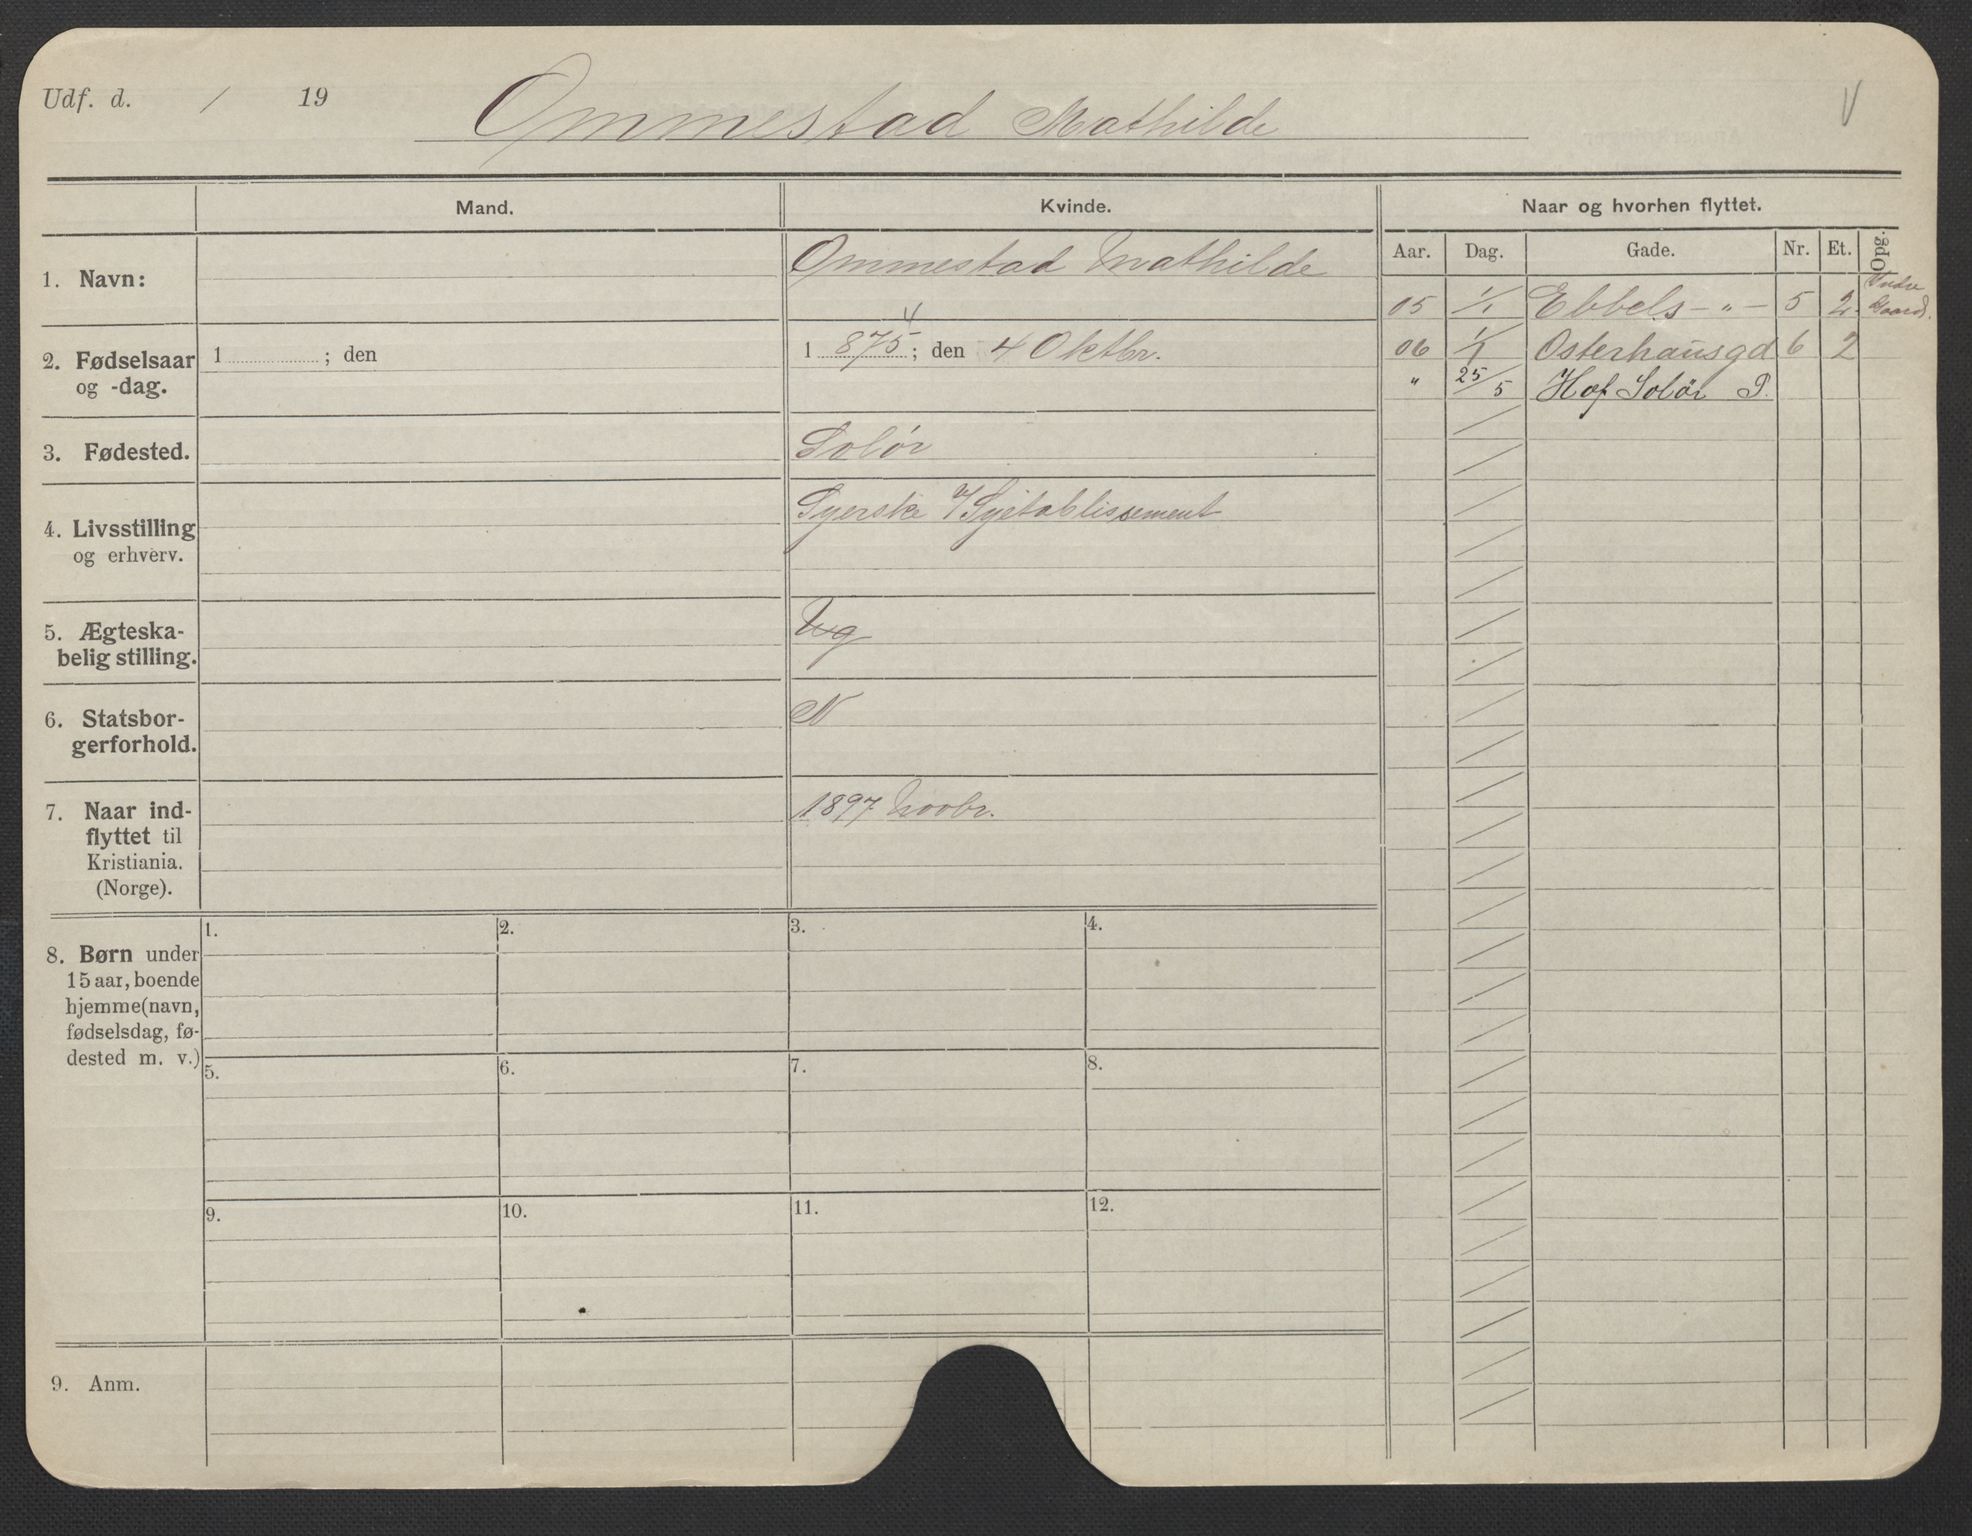 Udf. d. / 19
Ommestad Mathilde
V
Mand.
Kvinde.
Naar og hvorhen flyttet.
Aar. Dag. Gade. Nr. Et. Opg.
1. Navn:
Ommestad Mathilde
05 1/1 Ebbels - " - 5 2 Vestre Gaard.
2. Fødselsaar og -dag.
1 ; den
4
1 875 ; den 4 Oktbr.
06 1/1 Osterhausgd 6 2
" 25/5 Hof Solør P.
3. Fødested.
Solør
4. Livsstilling og erhverv.
Syerske i/ Syetablissement
5. Ægteska-
belig stilling.
Ug
6. Statsbor-
gerforhold.
N
7. Naar ind-
flyttet til
Kristiania.
(Norge).
1897 Novbr.
8. Børn under
15 aar, boende
hjemme (navn,
fødselsdag, fø-
dested m. v.)
1. 2. 3. 4.
5. 6. 7. 8.
9. 10. 11. 12.
9. Anm.